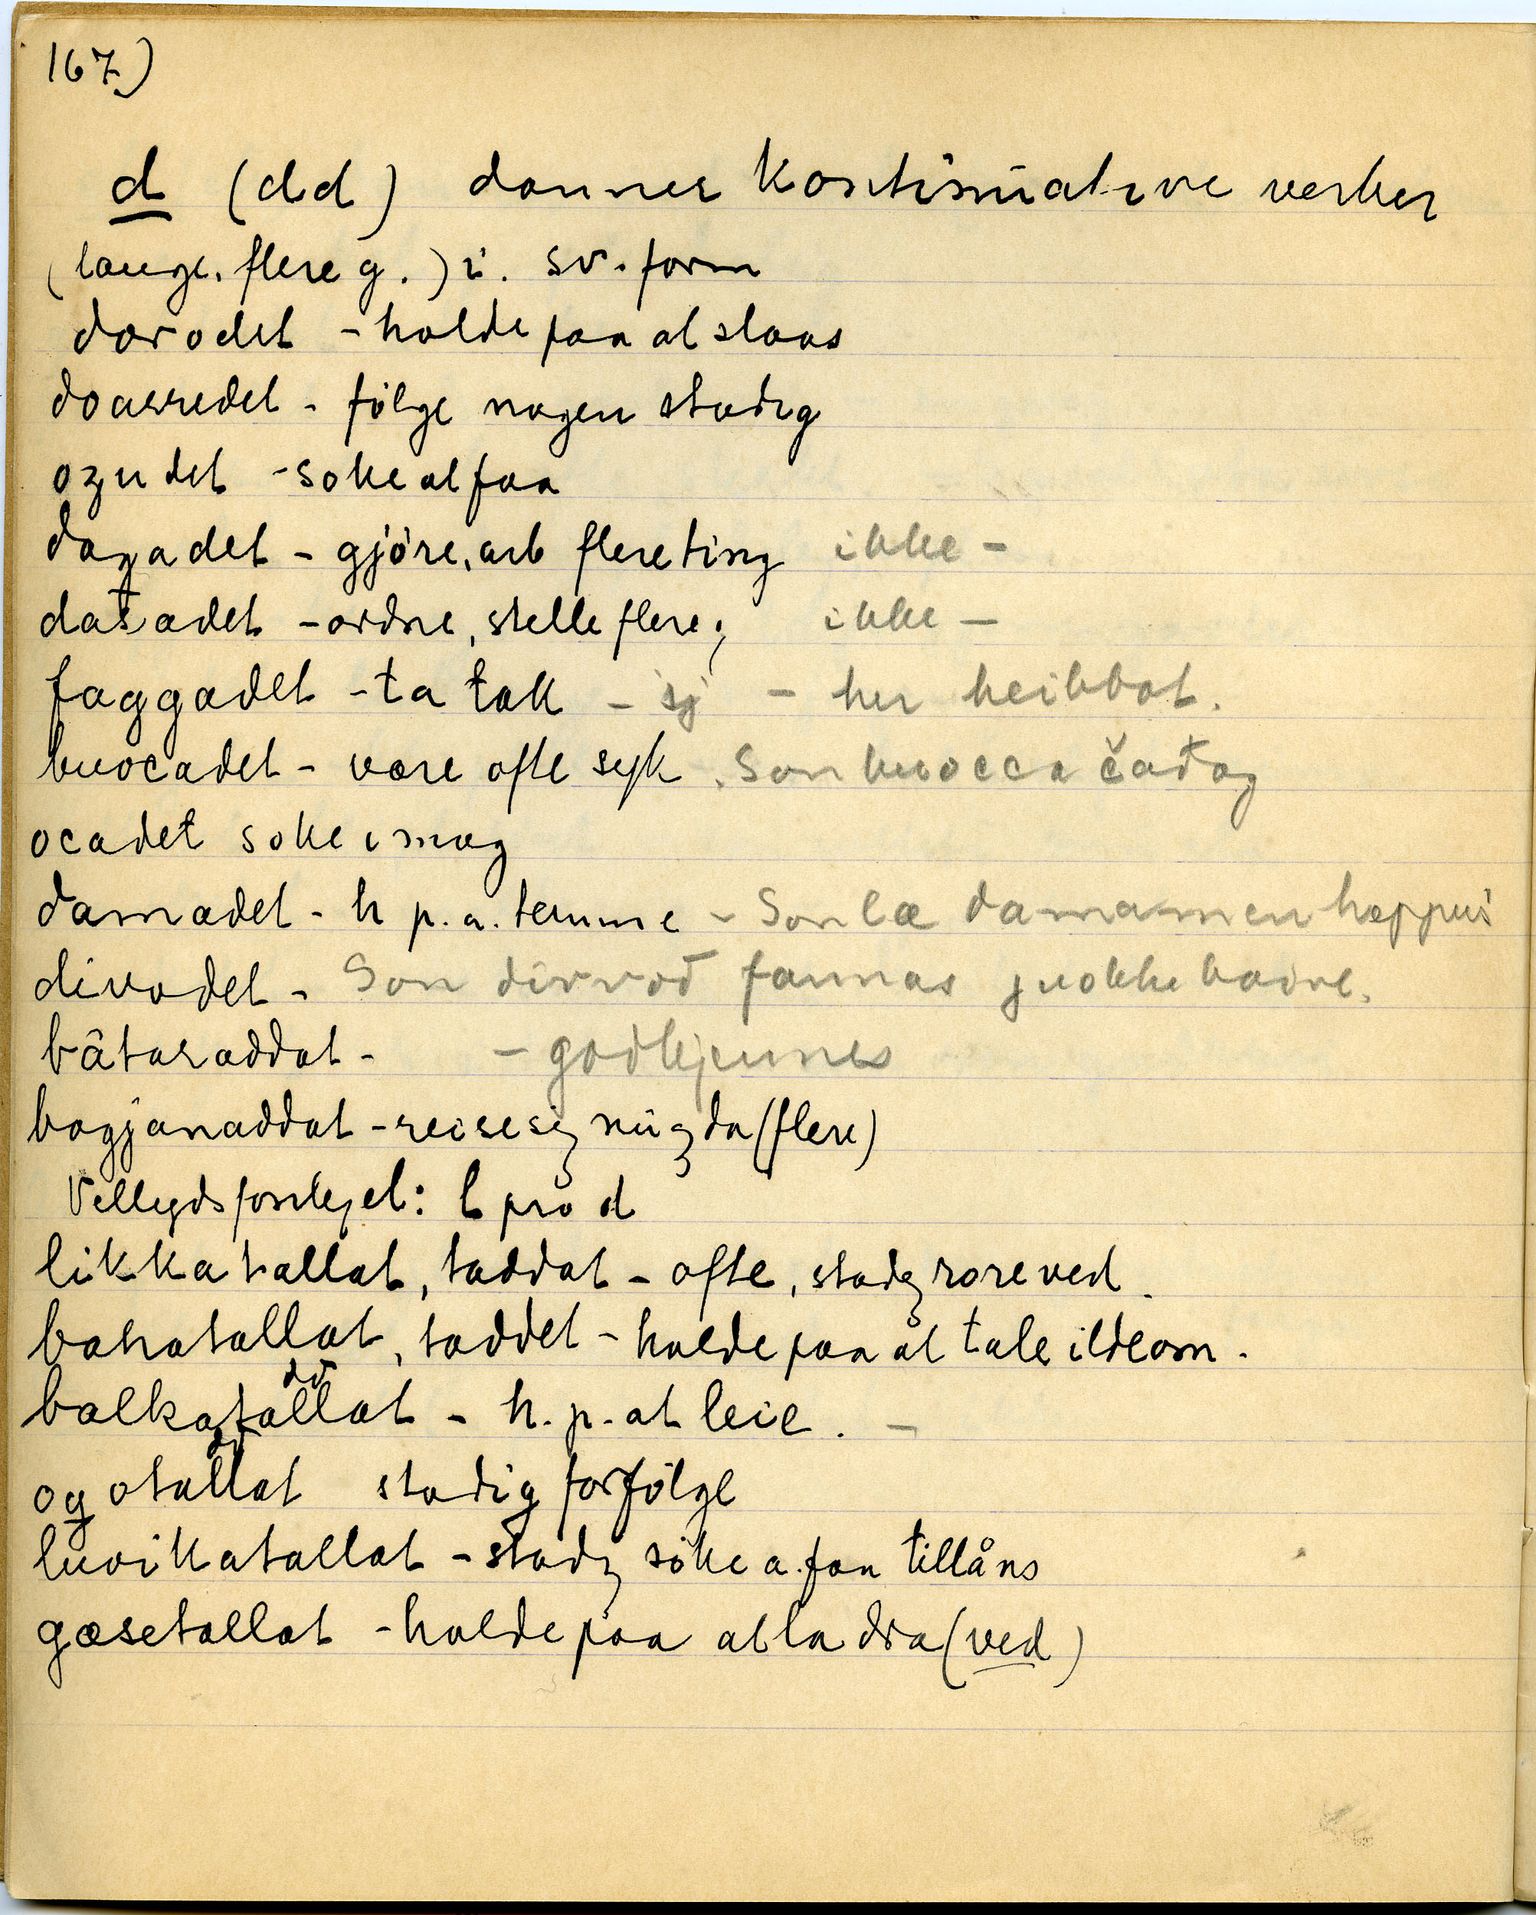 167)
d (dd) danner kontinuative verber
(lange, flere g.) i. sv. form
dorodet - holde paa at slaas
doarredet - følge nogen stadig
ozudet - søke at faa
dagadet - gjöre, arb flere ting ikke -
datadet - ordne, stelle flere g ikke -
faggadet - ta tak - sj - her heibbot.
buocadet - være ofte syk. Son buocca čađag
ocadet søke i mag
damadet - h p. a. temme - Son læ damamen hæppus
divodet - Son divvod fannas juokke baive.
bâtaraddat - - godkjennes
bagjanaddat - reise sig nu g da (flere)
Vellydsforhyel: t pro d
likkatallat, taddat - ofte, stadg røre ved.
bahatallat, taddet - holde paa at tale ilde om.
dd
balkatallat - h. p. at leie. -
dd
ogotallat stadig forfölge
luoikatallat - stadg söke a. faa tillåns
gæsetallat - holde paa at la dra (ved)